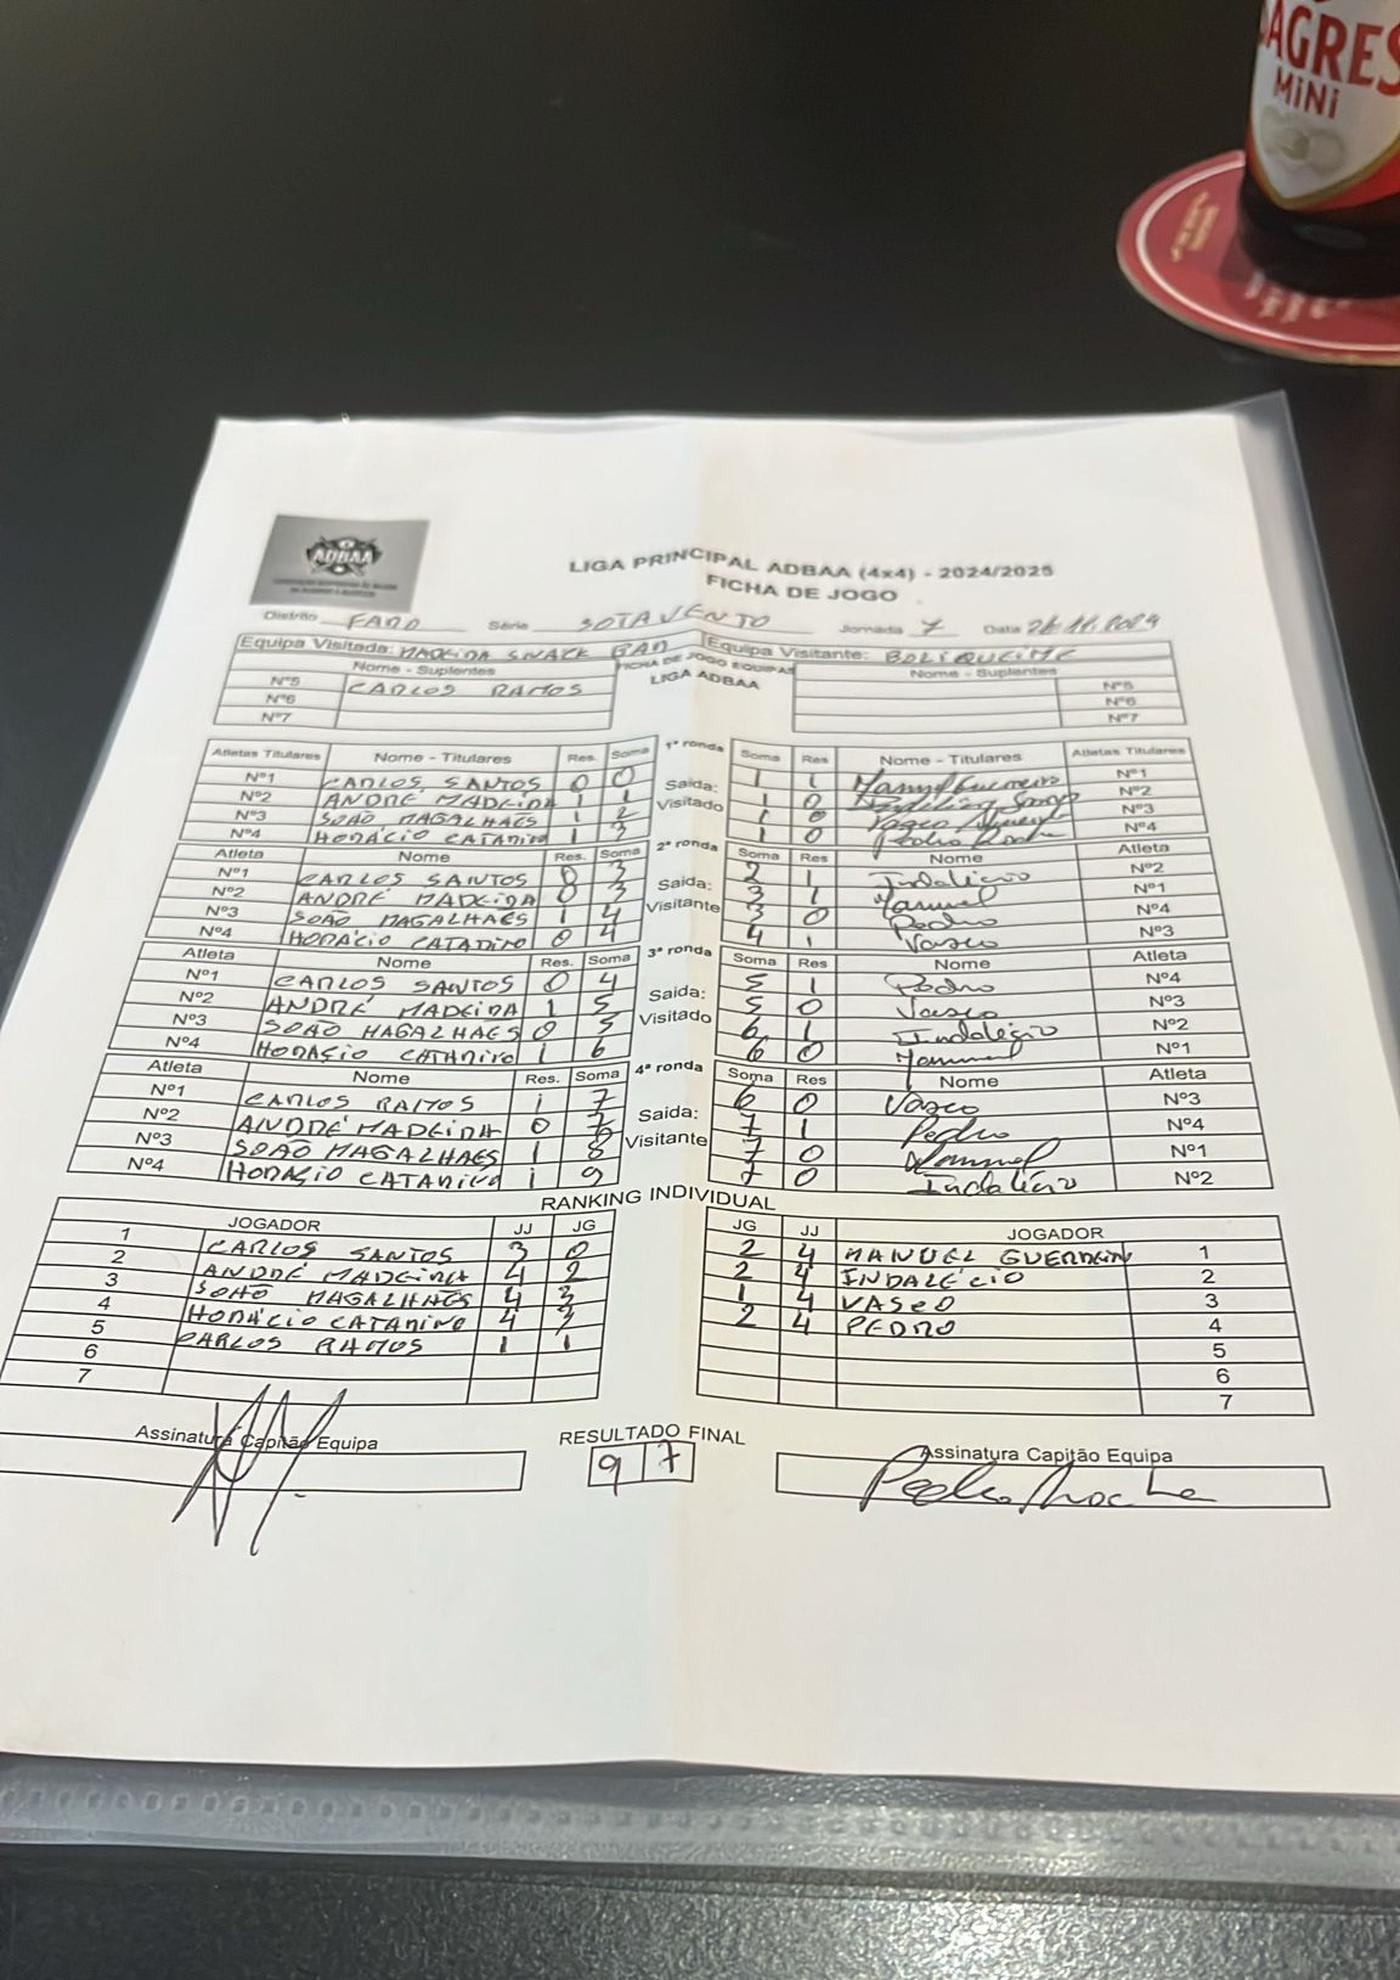 SAGRES
MiNi
ADBAA
LIGA PRINCIPAL ADBAA (4x4) - 2024/2025
FICHA DE JOGO
Distrito FARO Série SOTAVENTO Jornada 7 Data
Equipa Visitada: MADEIRA SNACK BAR Equipa Visitante: BOLIQUEIME
Nome - Suplentes FICHA DE JOGO EQUIPAS Nome - Suplentes
LIGA ADBAA
Nº5 CARLOS RAMOS Nº5
Nº6 Nº6
Nº7 Nº7
Atletas Titulares Nome - Titulares Res. Soma 1ª ronda Soma Res Nome - Titulares Atletas Titulares
Nº1 CARLOS SANTOS 0 0 Saida: 1 1 Manuel Guerreiro Nº1
Nº2 ANDRÉ MADEIRA 1 1 Visitado 1 0 Nº2
Nº3 JOÃO MAGALHAES 1 2 1 0 Vasco Nº3
Nº4 HORÁCIO CATARINO 1 3 1 0 Pedro Rocha Nº4
Atleta Nome Res. Soma 2ª ronda Soma Res Nome Atleta
Nº1 CARLOS SANTOS 0 3 Saida: 2 1 Indalécio Nº2
Nº2 ANDRÉ MADEIRA 0 3 Visitante 3 1 Manuel Nº1
Nº3 JOÃO MAGALHAES 1 4 3 0 Pedro Nº4
Nº4 HORÁCIO CATARINO 0 4 4 1 Vasco Nº3
Atleta Nome Res. Soma 3ª ronda Soma Res Nome Atleta
Nº1 CARLOS SANTOS 0 4 Saida: 5 1 Pedro Nº4
Nº2 ANDRÉ MADEIRA 1 5 Visitado 5 0 Vasco Nº3
Nº3 JOÃO MAGALHAES 0 5 6 1 Indalécio Nº2
Nº4 HORÁCIO CATARINO 1 6 6 0 Manuel Nº1
Atleta Nome Res. Soma 4ª ronda Soma Res Nome Atleta
Nº1 CARLOS RAMOS 1 7 Saida: 6 0 Vasco Nº3
Nº2 ANDRÉ MADEIRA 0 7 Visitante 7 1 Pedro Nº4
Nº3 JOÃO MAGALHAES 1 8 7 0 Manuel Nº1
Nº4 HORÁCIO CATARINO 1 9 7 0 Indalécio Nº2
RANKING INDIVIDUAL
JOGADOR JJ JG JG JJ JOGADOR
1 CARLOS SANTOS 3 0 2 4 MANUEL GUERREIRO 1
2 ANDRÉ MADEIRA 4 2 2 4 INDALÉCIO 2
3 JOÃO MAGALHAES 4 3 1 4 VASCO 3
4 HORÁCIO CATARINO 4 3 2 4 PEDRO 4
5 CARLOS RAMOS 1 1 5
6 6
7 7
Assinatura Capitão Equipa RESULTADO FINAL Assinatura Capitão Equipa
9 7 Pedro Rocha